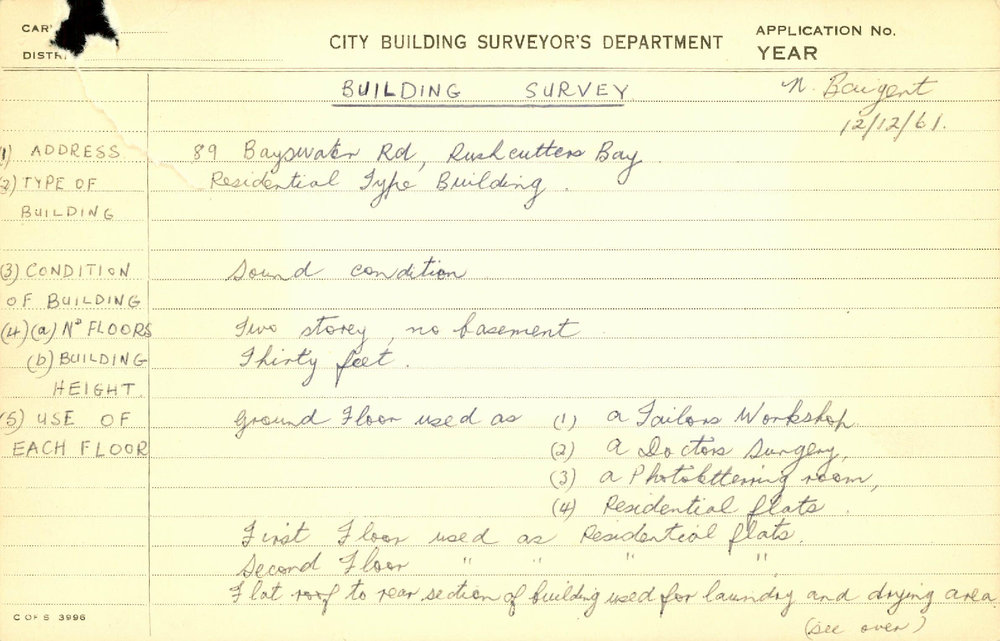 CITY BUILDING SURVEYOR'S DEPARTMENT
APPLICATION No.
YEAR
BUILDING SURVEY
N. Baigent
12/12/61.
(1) ADDRESS 89 Bayswater Rd, Rushcutters Bay
(2) TYPE OF Residential Type Building.
BUILDING
(3) CONDITION Sound condition
OF BUILDING
(4) (a) No FLOORS Two storey, no basement
(b) BUILDING Thirty feet.
HEIGHT.
(5) USE OF Ground Floor used as (1) a Tailors Workshop
EACH FLOOR (2) a Doctors Surgery,
(3) a Photolettering room,
(4) Residential flats.
First Floor used as Residential flats.
Second Floor " " " "
Flat roof to rear section of building used for laundry and drying area
(see over)
C OF S 3996